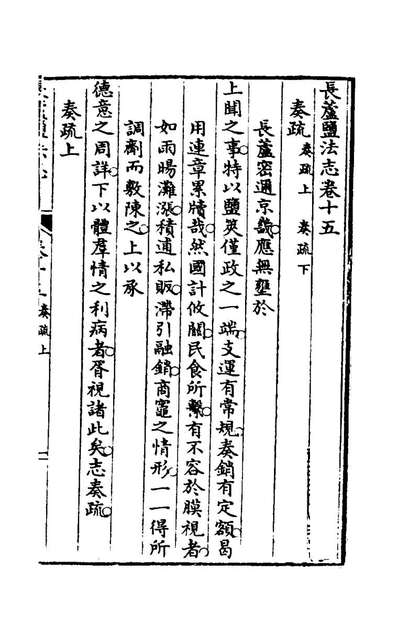 長蘆鹽法志卷十五
奏疏 奏疏上 奏疏下
長蘆密邇京畿應無壅於
上聞之事特以鹽筴僅政之一端支運有常規奏銷有定額曷
用連章累牘哉然國計攸關民食所繫有不容於膜視者
如雨暘灘漲積逋私販滯引融銷商竈之情形一一得所
調劑而敷陳之上以承
德意之周詳下以體羣情之利病者胥視諸此矣志奏疏
奏疏上
奏疏上